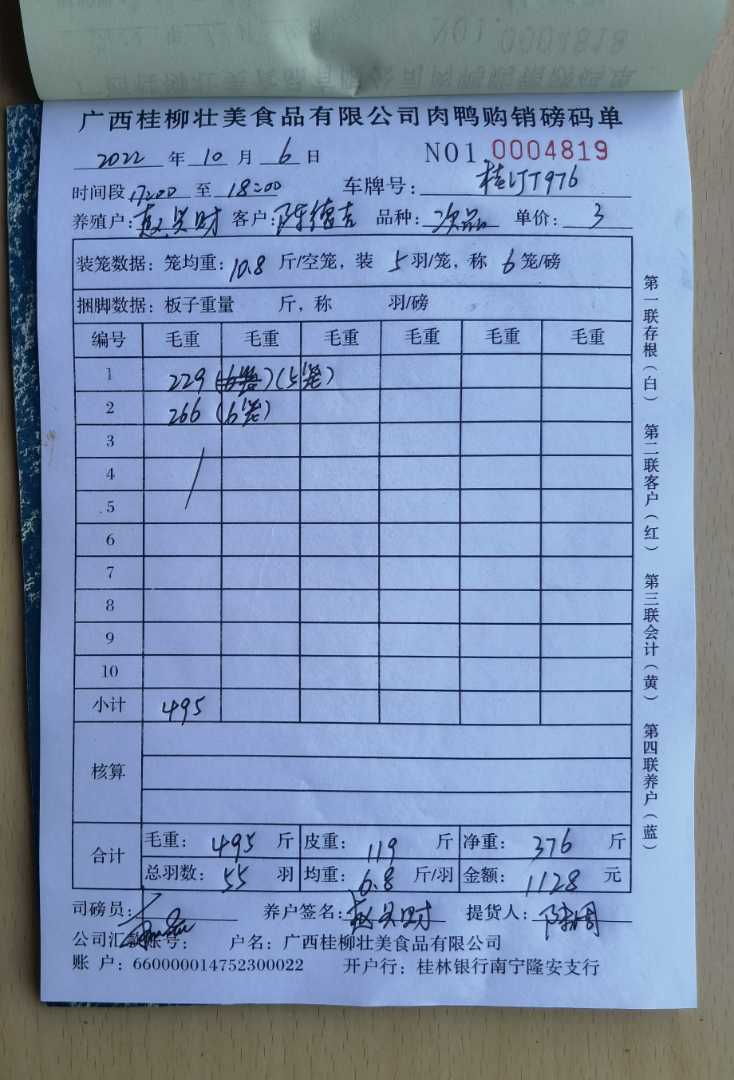 广西桂柳壮美食品有限公司肉鸭购销磅码单
2022 年 10 月 6 日 NO1 0004819
时间段 17:00 至 18:00 车牌号: 桂 T976
养殖户: 财 客户: 陈德吉 品种: 次品 单价: 3
装笼数据: 笼均重: 10.8 斤/空笼, 装 5 羽/笼, 称 6 笼/磅
捆脚数据: 板子重量 斤, 称 羽/磅
编号 毛重 毛重 毛重 毛重 毛重 毛重
1 229 (5笼)
2 266 (6笼)
3
4
5
6
7
8
9
10
小计 495
核算
合计 毛重: 495 斤 皮重: 119 斤 净重: 376 斤
总羽数: 55 羽 均重: 6.8 斤/羽 金额: 1128 元
司磅员: 养户签名: 财 提货人:
公司汇款账号: 户名: 广西桂柳壮美食品有限公司
账 户: 660000014752300022 开户行: 桂林银行南宁隆安支行
第一联存根(白) 第二联客户(红) 第三联会计(黄) 第四联养户(蓝)